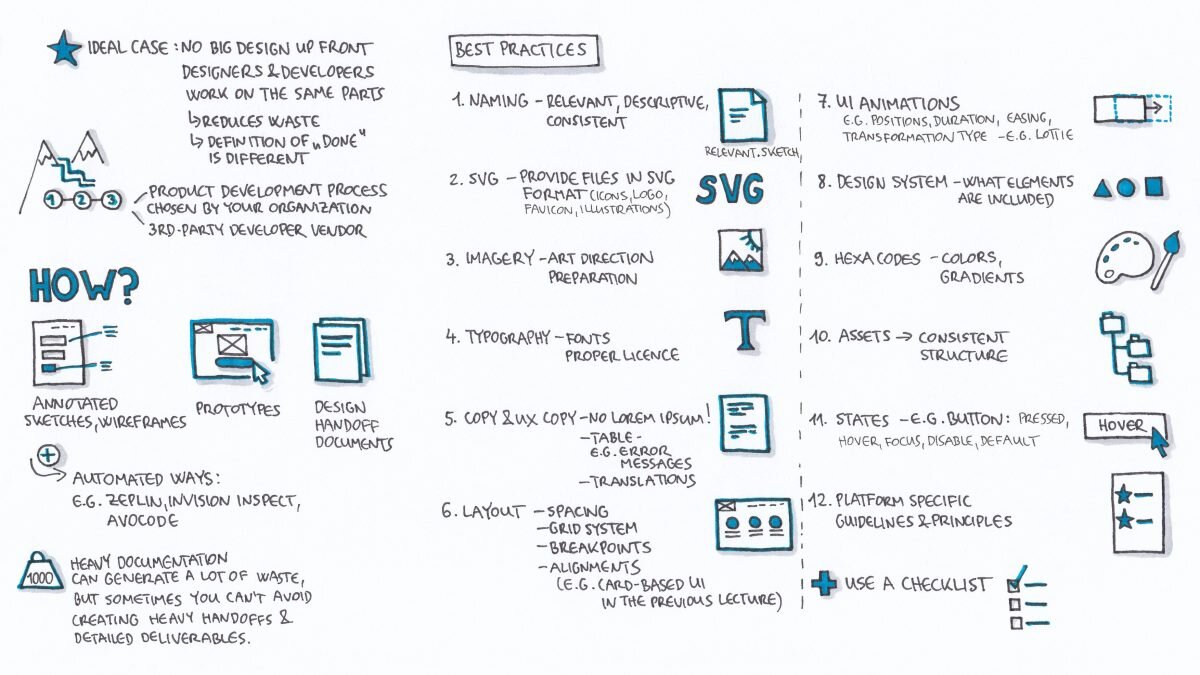 IDEAL CASE: NO BIG DESIGN UP FRONT
DESIGNERS & DEVELOPERS
WORK ON THE SAME PARTS
↳ REDUCES WASTE
↳ DEFINITION OF „DONE"
IS DIFFERENT
1 2 3
PRODUCT DEVELOPMENT PROCESS
CHOSEN BY YOUR ORGANIZATION
3RD-PARTY DEVELOPER VENDOR
HOW?
ANNOTATED
SKETCHES, WIREFRAMES
PROTOTYPES
DESIGN
HANDOFF
DOCUMENTS
+
AUTOMATED WAYS:
E.G. ZEPLIN, INVISION INSPECT,
AVOCODE
1000
HEAVY DOCUMENTATION
CAN GENERATE A LOT OF WASTE,
BUT SOMETIMES YOU CAN'T AVOID
CREATING HEAVY HANDOFFS &
DETAILED DELIVERABLES.
BEST PRACTICES
1. NAMING – RELEVANT, DESCRIPTIVE,
CONSISTENT
RELEVANT.SKETCH
2. SVG – PROVIDE FILES IN SVG
FORMAT (ICONS, LOGO,
FAVICON, ILLUSTRATIONS)
SVG
3. IMAGERY – ART DIRECTION
PREPARATION
4. TYPOGRAPHY – FONTS
PROPER LICENCE
T
5. COPY & UX COPY – NO LOREM IPSUM!
– TABLE –
E.G. ERROR
MESSAGES
– TRANSLATIONS
6. LAYOUT – SPACING
– GRID SYSTEM
– BREAKPOINTS
– ALIGNMENTS
(E.G. CARD-BASED UI
IN THE PREVIOUS LECTURE)
7. UI ANIMATIONS
E.G. POSITIONS, DURATION, EASING,
TRANSFORMATION TYPE – E.G. LOTTIE
8. DESIGN SYSTEM – WHAT ELEMENTS
ARE INCLUDED
9. HEXA CODES – COLORS,
GRADIENTS
10. ASSETS → CONSISTENT
STRUCTURE
11. STATES – E.G. BUTTON: PRESSED,
HOVER, FOCUS, DISABLE, DEFAULT
HOVER
12. PLATFORM SPECIFIC
GUIDELINES & PRINCIPLES
+ USE A CHECKLIST